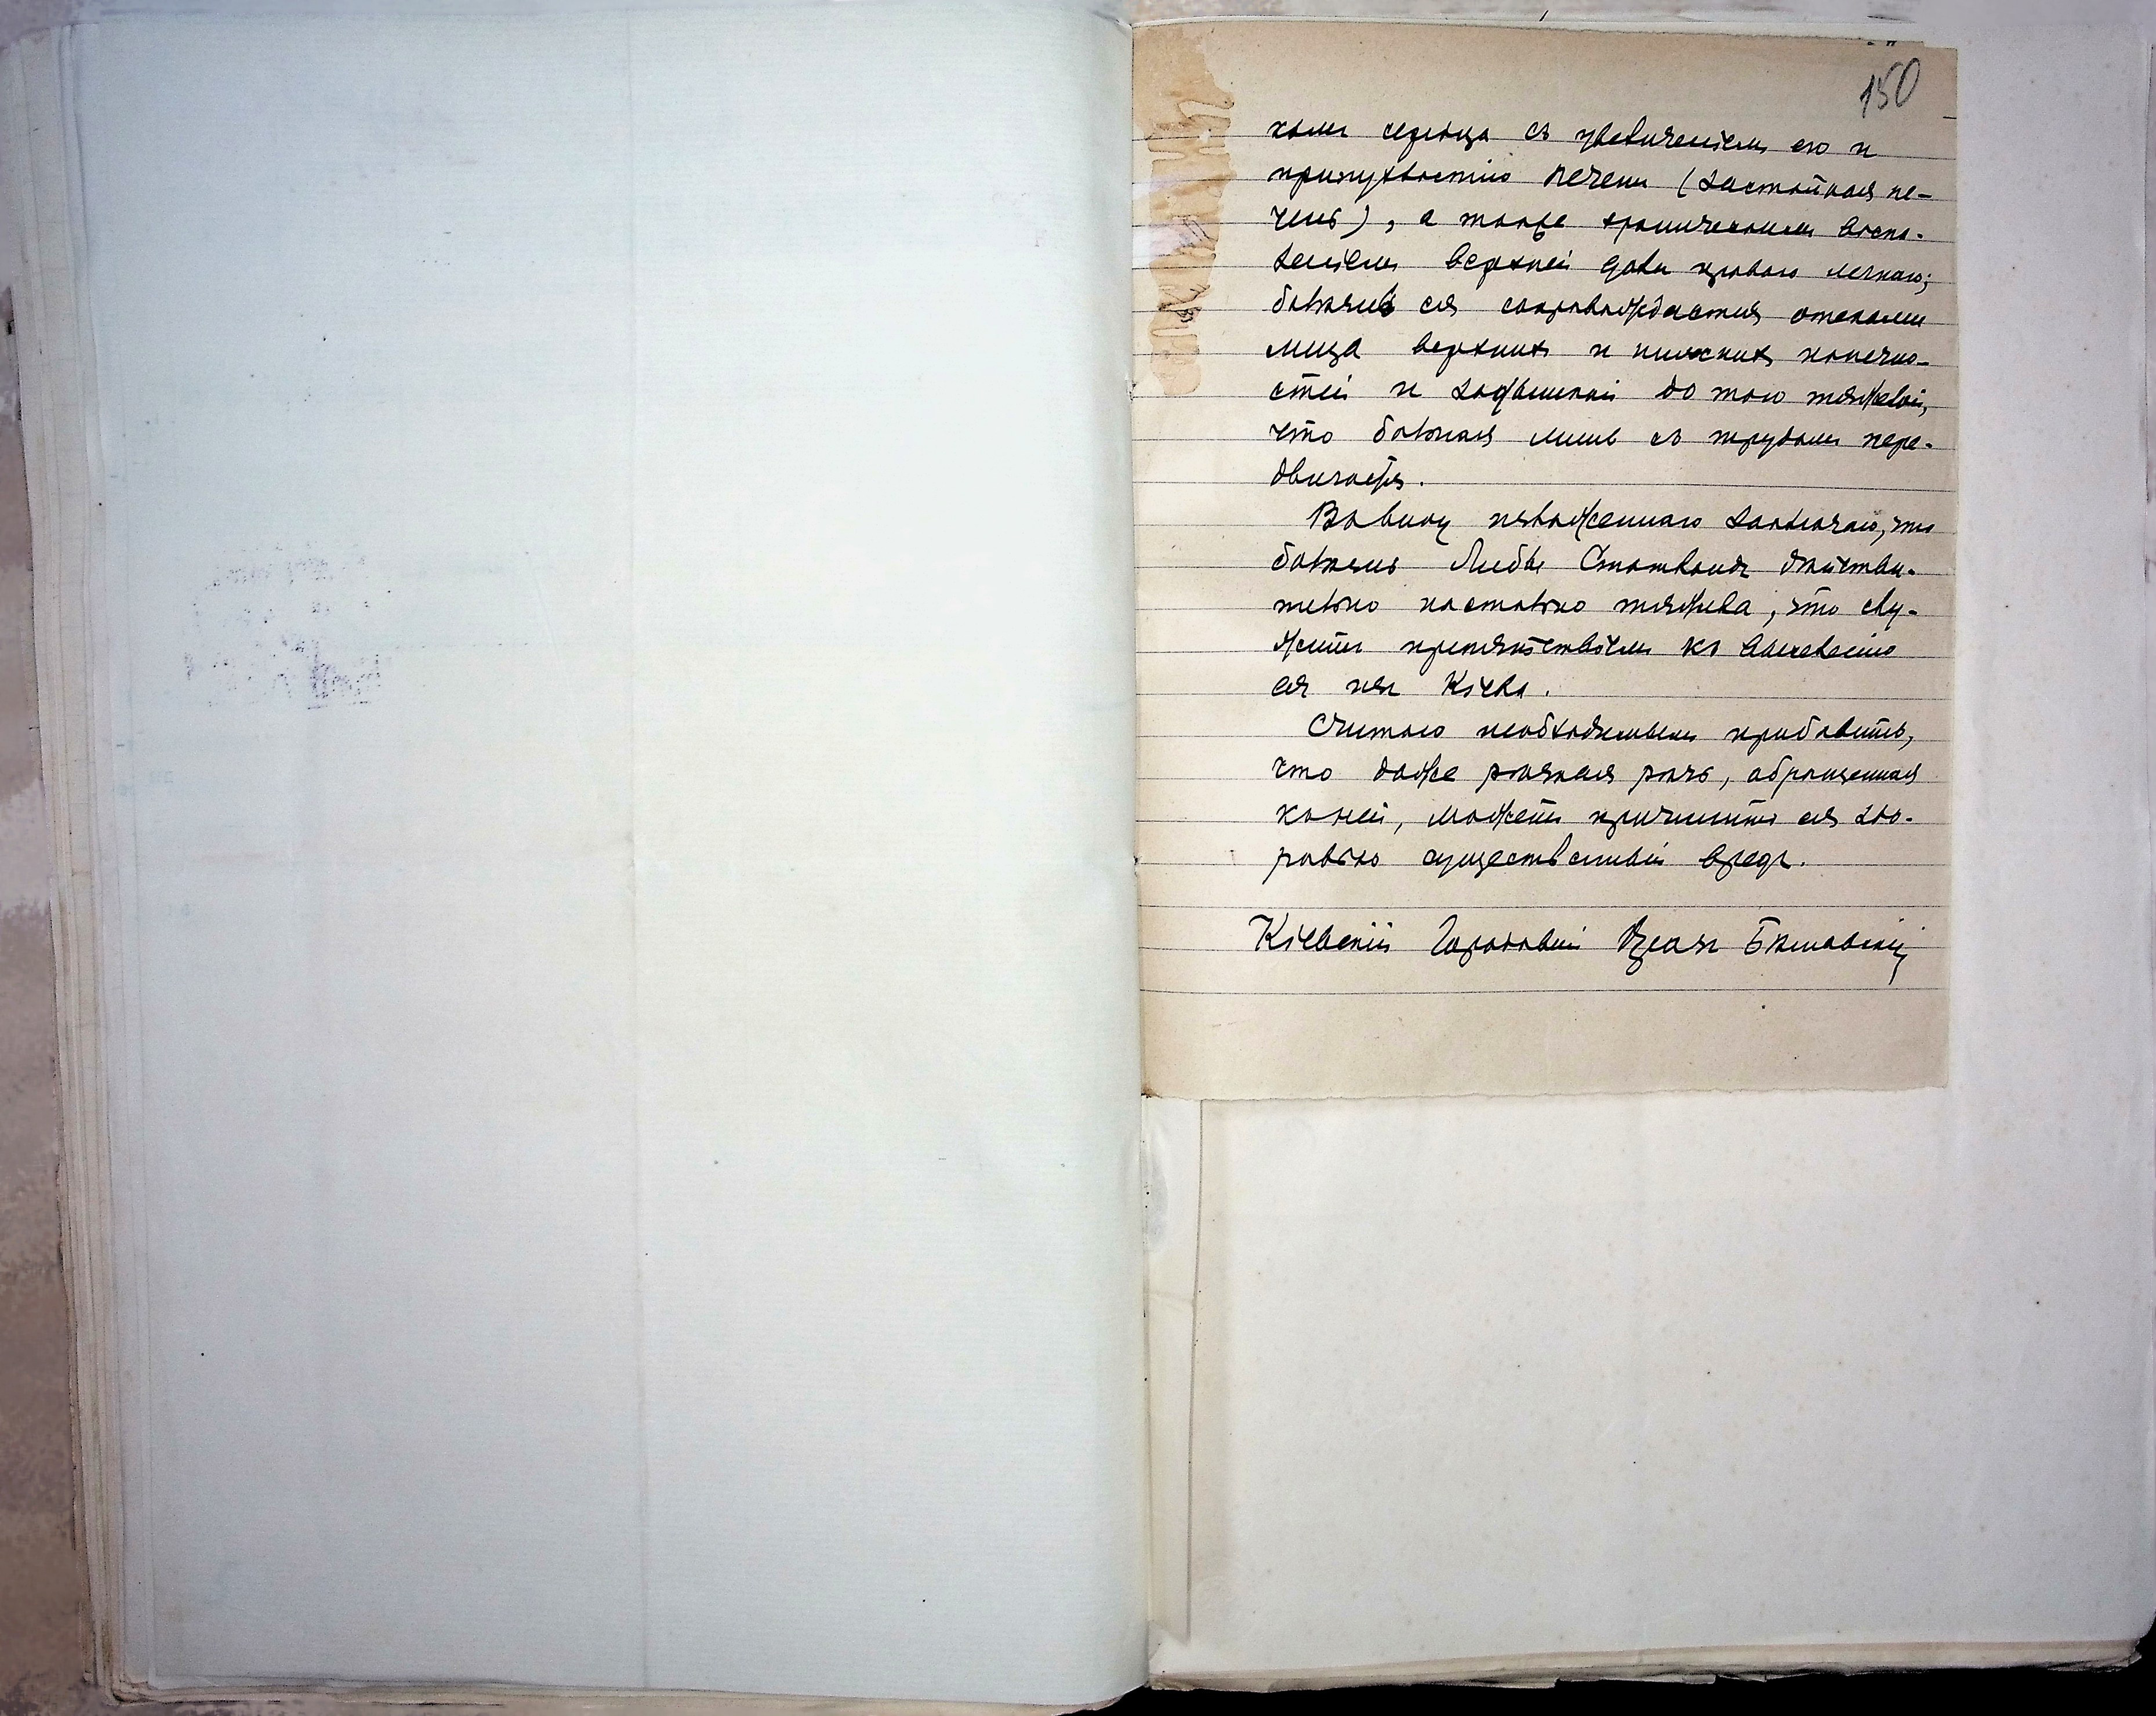 150
комъ сердца съ увеличеніемъ его и
припухлостію печени (застойная пе-
чень), а также хроническимъ воспа-
леніемъ верхней доли праваго легкаго;
болѣзнь ея сопровождается отеками
лица верхнихъ и нижнихъ конечно-
стей и одышкой до того тяжелой,
что больная лишь съ трудомъ пере-
двигается.
Въ виду изложеннаго заключаю, что
болѣзнь Любы дѣйстви-
тельно настолько тяжела, что слу-
житъ препятствіемъ къ выселенію
ея изъ Кіева.
Считаю необходимымъ прибавить,
что даже рѣзкая рѣчь, обращенная
къ ней, можетъ причинить ея здо-
ровью существенный вредъ.
Кіевскій Городовой Врачъ